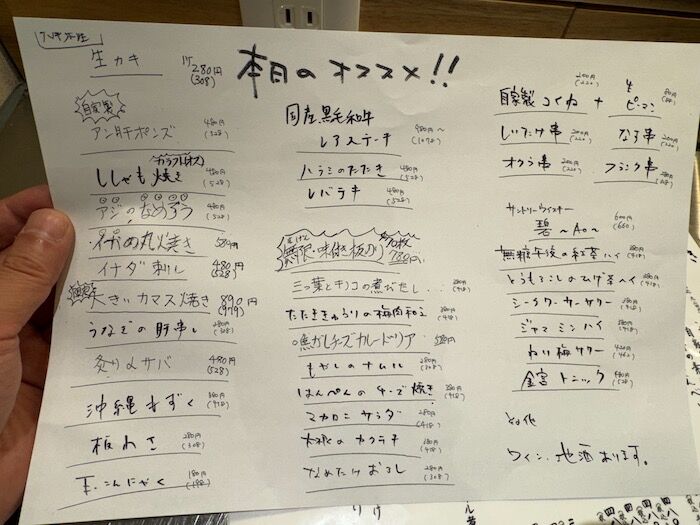 生カキ 1ケ 280円 (308)
本日のオススメ!!
自家製
アン肝ポンズ 480円 (528)
カラフトオス
ししゃも焼き 480円 (528)
アジのなめろう 480円 (528)
丸焼き
イナダ刺し 480円 (528)
大きいカマス焼き 890円 (979)
うなぎの肝串し 280円 (308)
炙り〆サバ 480円 (528)
沖縄もずく 380円 (418)
板わさ 280円 (308)
玉こんにゃく 180円 (198)
国産黒毛和牛
レアステーキ 980円〜 (1078)
ハラミのたたき 480円 (528)
レバテキ 480円 (528)
無限・味付き板のり 780円
三つ葉とキノコの煮びたし 380円 (418)
たたききゅうりの梅肉和え 380円 (418)
焦がしチーズカレードリア
もやしのナムル 280円 (308)
はんぺんのチーズ焼き 380円 (418)
マカロニサラダ (418)
大根のカクテキ 380円 (418)
なめたけおろし 280円 (308)
自家製つくね 200円 (220)
生ピーマン 80円 (88)
しいたけ串 200円 (220)
なす串 200円 (220)
オクラ串 200円 (220)
フランク串
サントリーウイスキー
碧 〜Ao〜 600円 (660)
無糖午後の紅茶ハイ 380円 (418)
とうもろこしのひげ茶ハイ 380円 (418)
シークワーサーサワー 380円 (418)
ジャスミンハイ 380円 (418)
ねり梅サワー 420円 (462)
金宮トニック 480円 (528)
その他
ワイン、地酒あります。